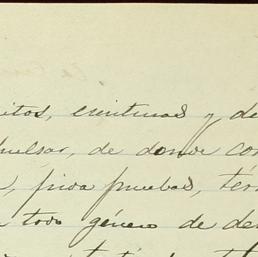 itos, escrituras y de
pulsar, de donde con
, pida pruebas, tér
todo género de de